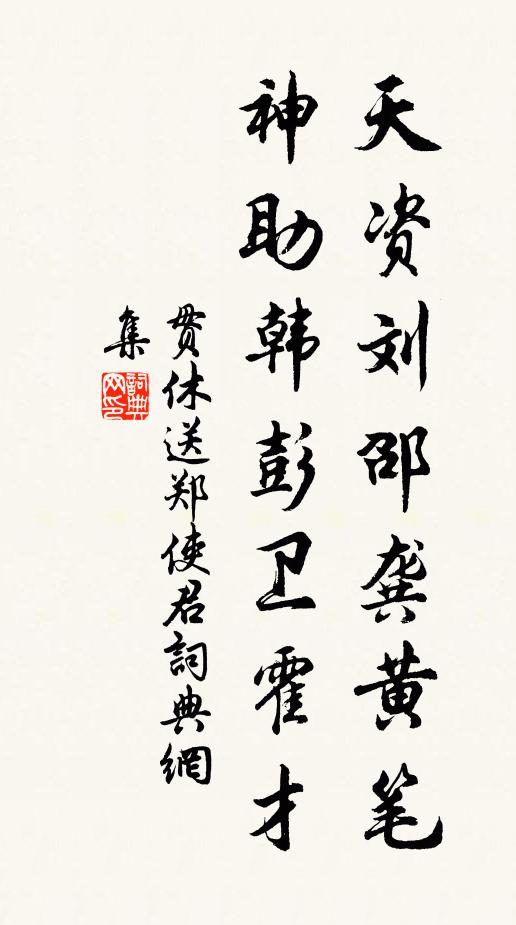 天资刘邵龚黄笔
神助韩彭卫霍才
贯休送郑使君詞典網
集
詞典
网印